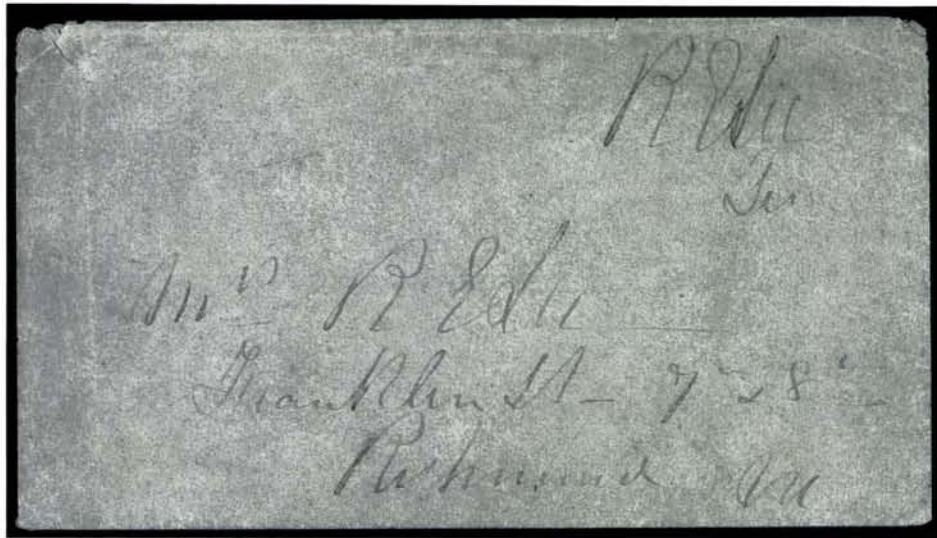 R E Lee
Gen
Mrs R E Lee
Franklin St - 7th & 8th
Richmond Va